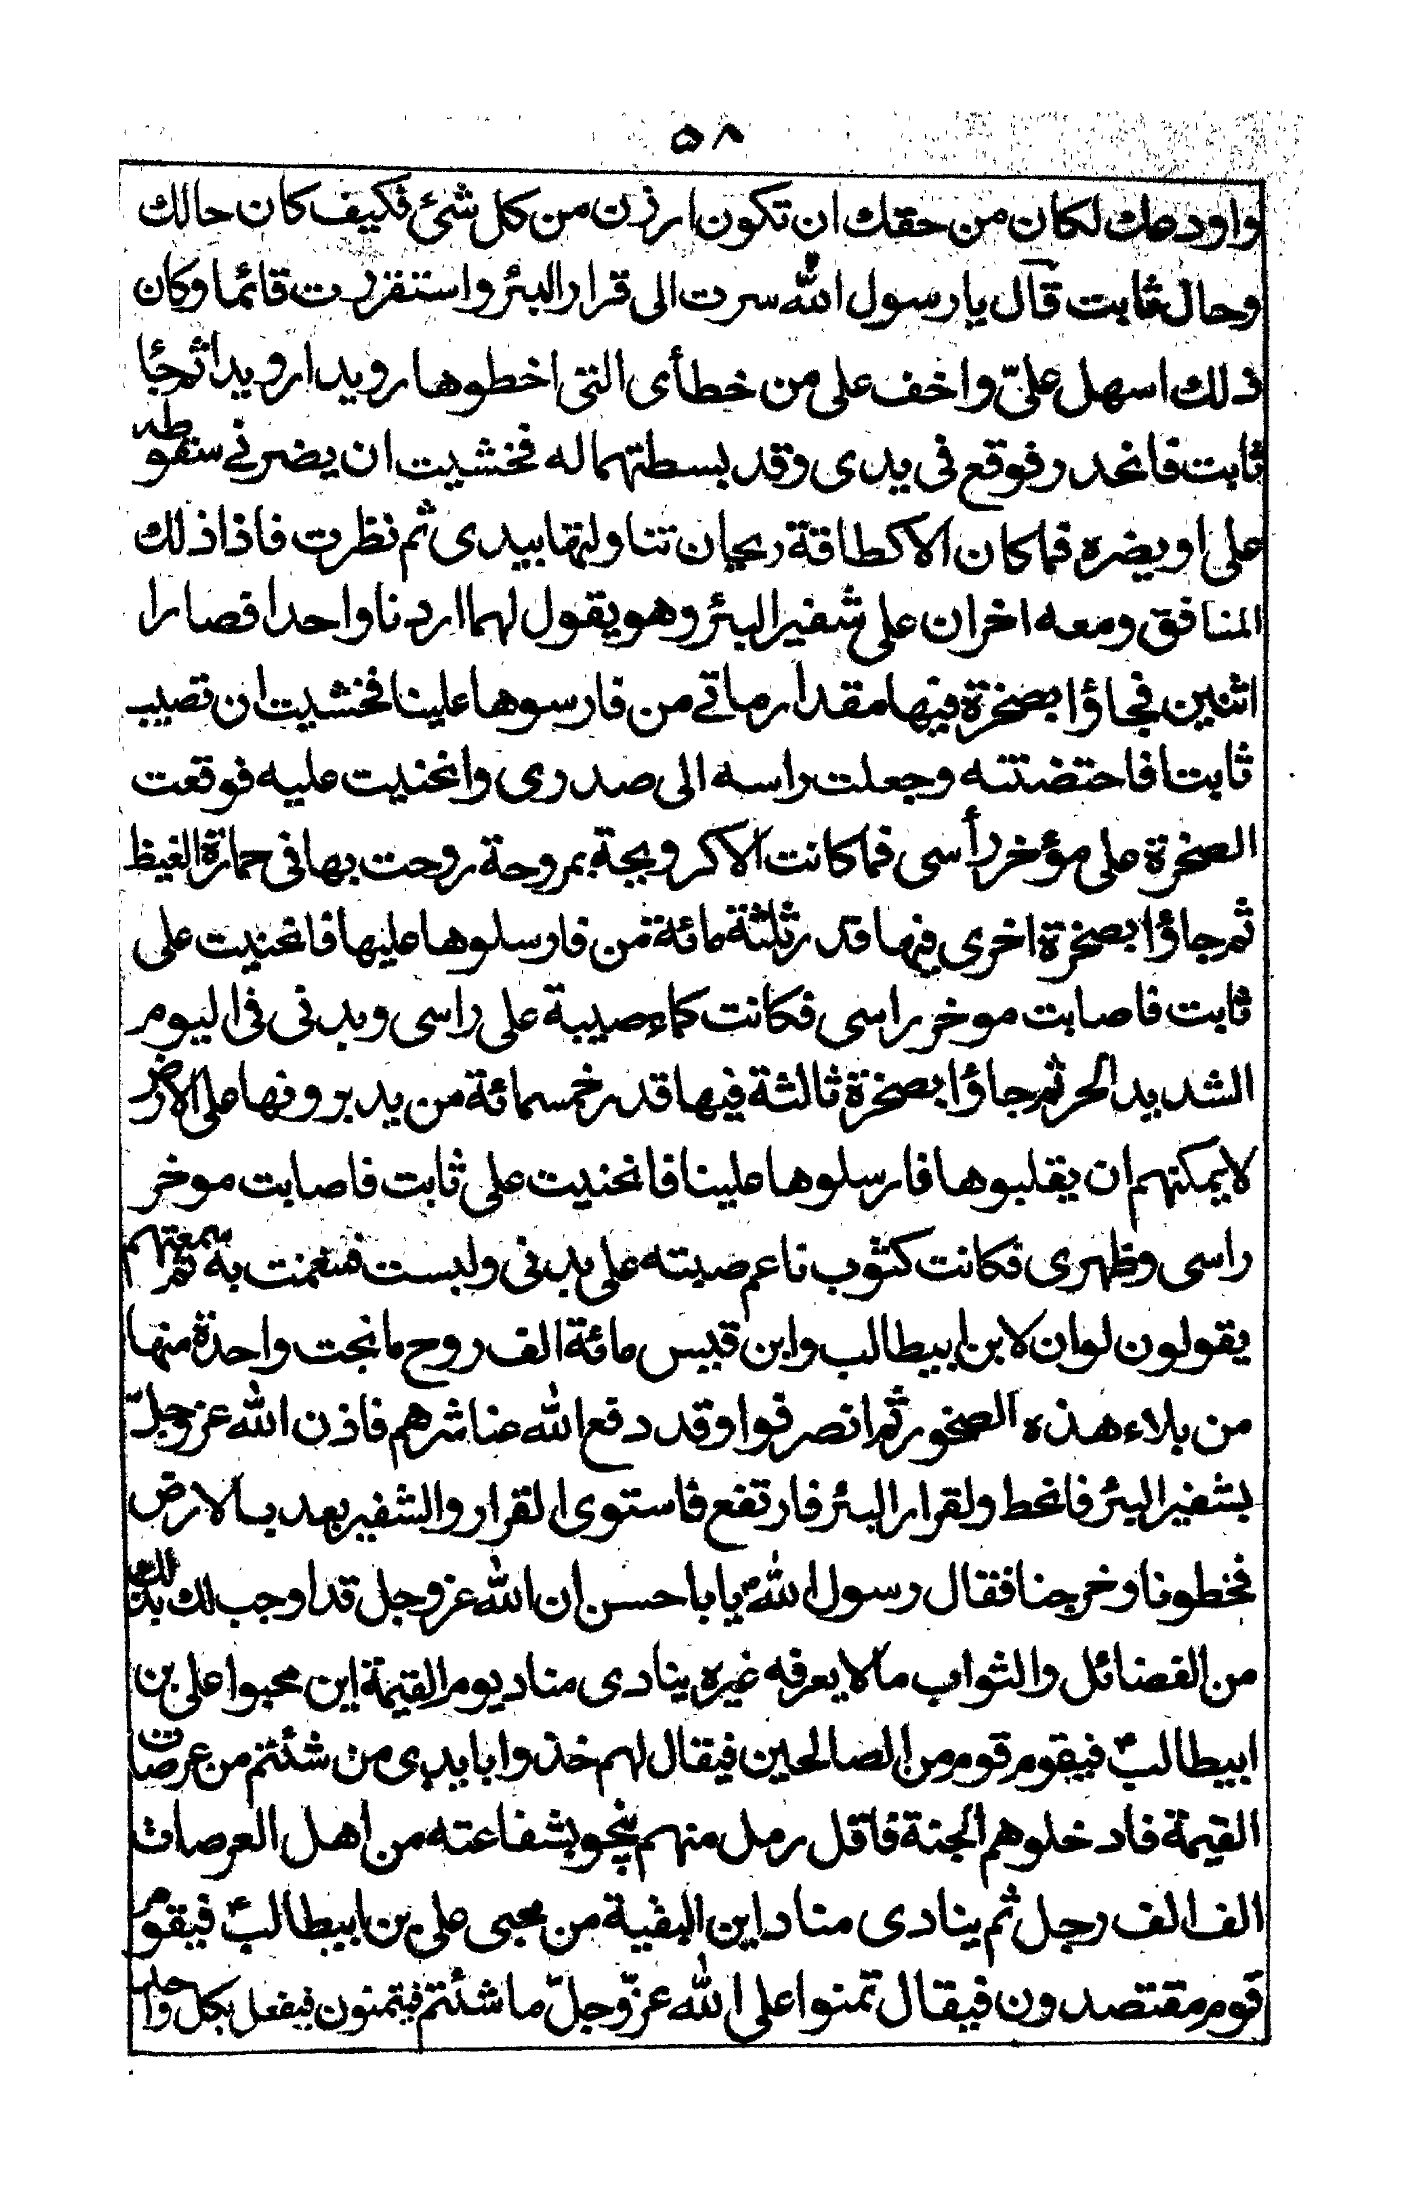 ٥٨
واودعك لكان من حقك ان تكون ارزن من كل شئ فكيف كان حالك
وحال ثابت قال يا رسول الله سرت الى قرار البئر واستقررت قائما وكان
ذلك اسهل علىّ واخف على من خطأى التى اخطوها رويدا رويدا ثم جاء
ثابت فانحدر فوقع فى يدى وقد بسطتهما له فخشيت ان يضرنى سقوطه
على او يضره فما كان الا كطاقة ريحان تناولتها بيدى ثم نظرت فاذا ذلك
المنافق ومعه اخران على شفير البئر وهو يقول لهما اردنا واحدا فصارا
اثنين فجاؤا بصخرة فيها مقدار ماتى من فارسوها علينا فخشيت ان تصيب
ثابتا فاحتضنته وجعلت راسه الى صدرى وانحنيت عليه فوقعت
الصخرة على مؤخر رأسى فما كانت الا كرويحة بمروحة روحت بها فى حمارة الغيظ
ثم جاؤا بصخرة اخرى فيها قدر ثلثة مائة من فارسلوها عليها فانحنيت على
ثابت فاصابت موخر راسى فكانت كماء صببة على راسى وبدنى فى اليوم
الشديد الحر ثم جاؤا بصخرة ثالثة فيها قدر خمسمائة من يديرونها على الارض
لا يمكنهم ان يقلبوها فارسلوها علينا فانحنيت على ثابت فاصابت موخر
راسى وظهرى فكانت كثوب ناعم صببته على بدنى ولبست فتنعمت به ثم سمعتهم
يقولون لو ان لابن ابيطالب وابن قيس مائة الف روح ما نجت واحدة منها
من بلاء هذه الصخور ثم انصرفوا وقد دفع الله عنا شرهم فاذن الله عز وجلّ
بشفير البئر فانحط ولقرار البئر فارتفع فاستوى القرار والشفير بعد بالارض
فخطونا وخرجنا فقال رسول الله يا با حسن ان الله عز وجل قد اوجب لك بذلك
من الفضائل والثواب مالا يعرفه غيره ينادى مناد يوم القيمة اين محبوا على بن
ابيطالبؑ فيقوم قوم من الصالحين فيقال لهم خذوا بايدى من شئتم من عرصات
القيمة فادخلوهم الجنة فاقل رجل منهم ينجو بشفاعته من اهل العرصات
الف الف رجل ثم ينادى مناد اين البقية من محبى على بن ابيطالبؑ فيقوم
قوم مقتصدون فيقال تمنوا على الله عزّ وجلّ ما شئتم فيتمنون فيفعل بكل واحد